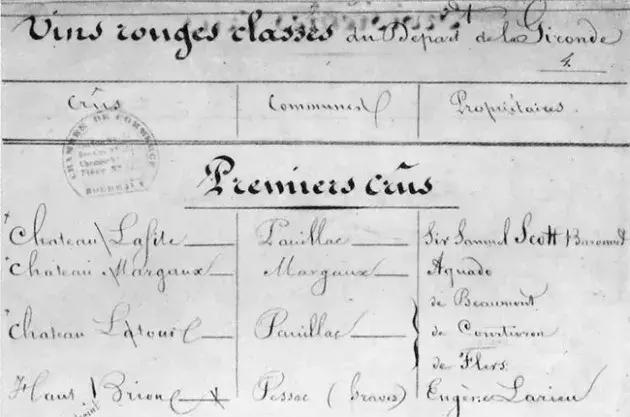 Vins rouges classés du Départ^t de la Gironde
4.
Crûs Communes Propriétaires
CHAMBRE DE COMMERCE
BORDEAUX
Premiers crûs
Chateau Lafite Pauillac Sir Samuel Scott Baronnet
Chateau Margaux Margaux Aguado
de Beaumont
Chateau Latour Pauillac de Courtivron
de Flers.
Haut Brion Pessac (Graves) Eugène Larieu